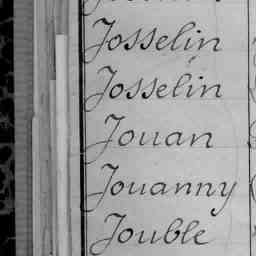 Josselin
Josselin
Jouan
Jouanny
Jouble